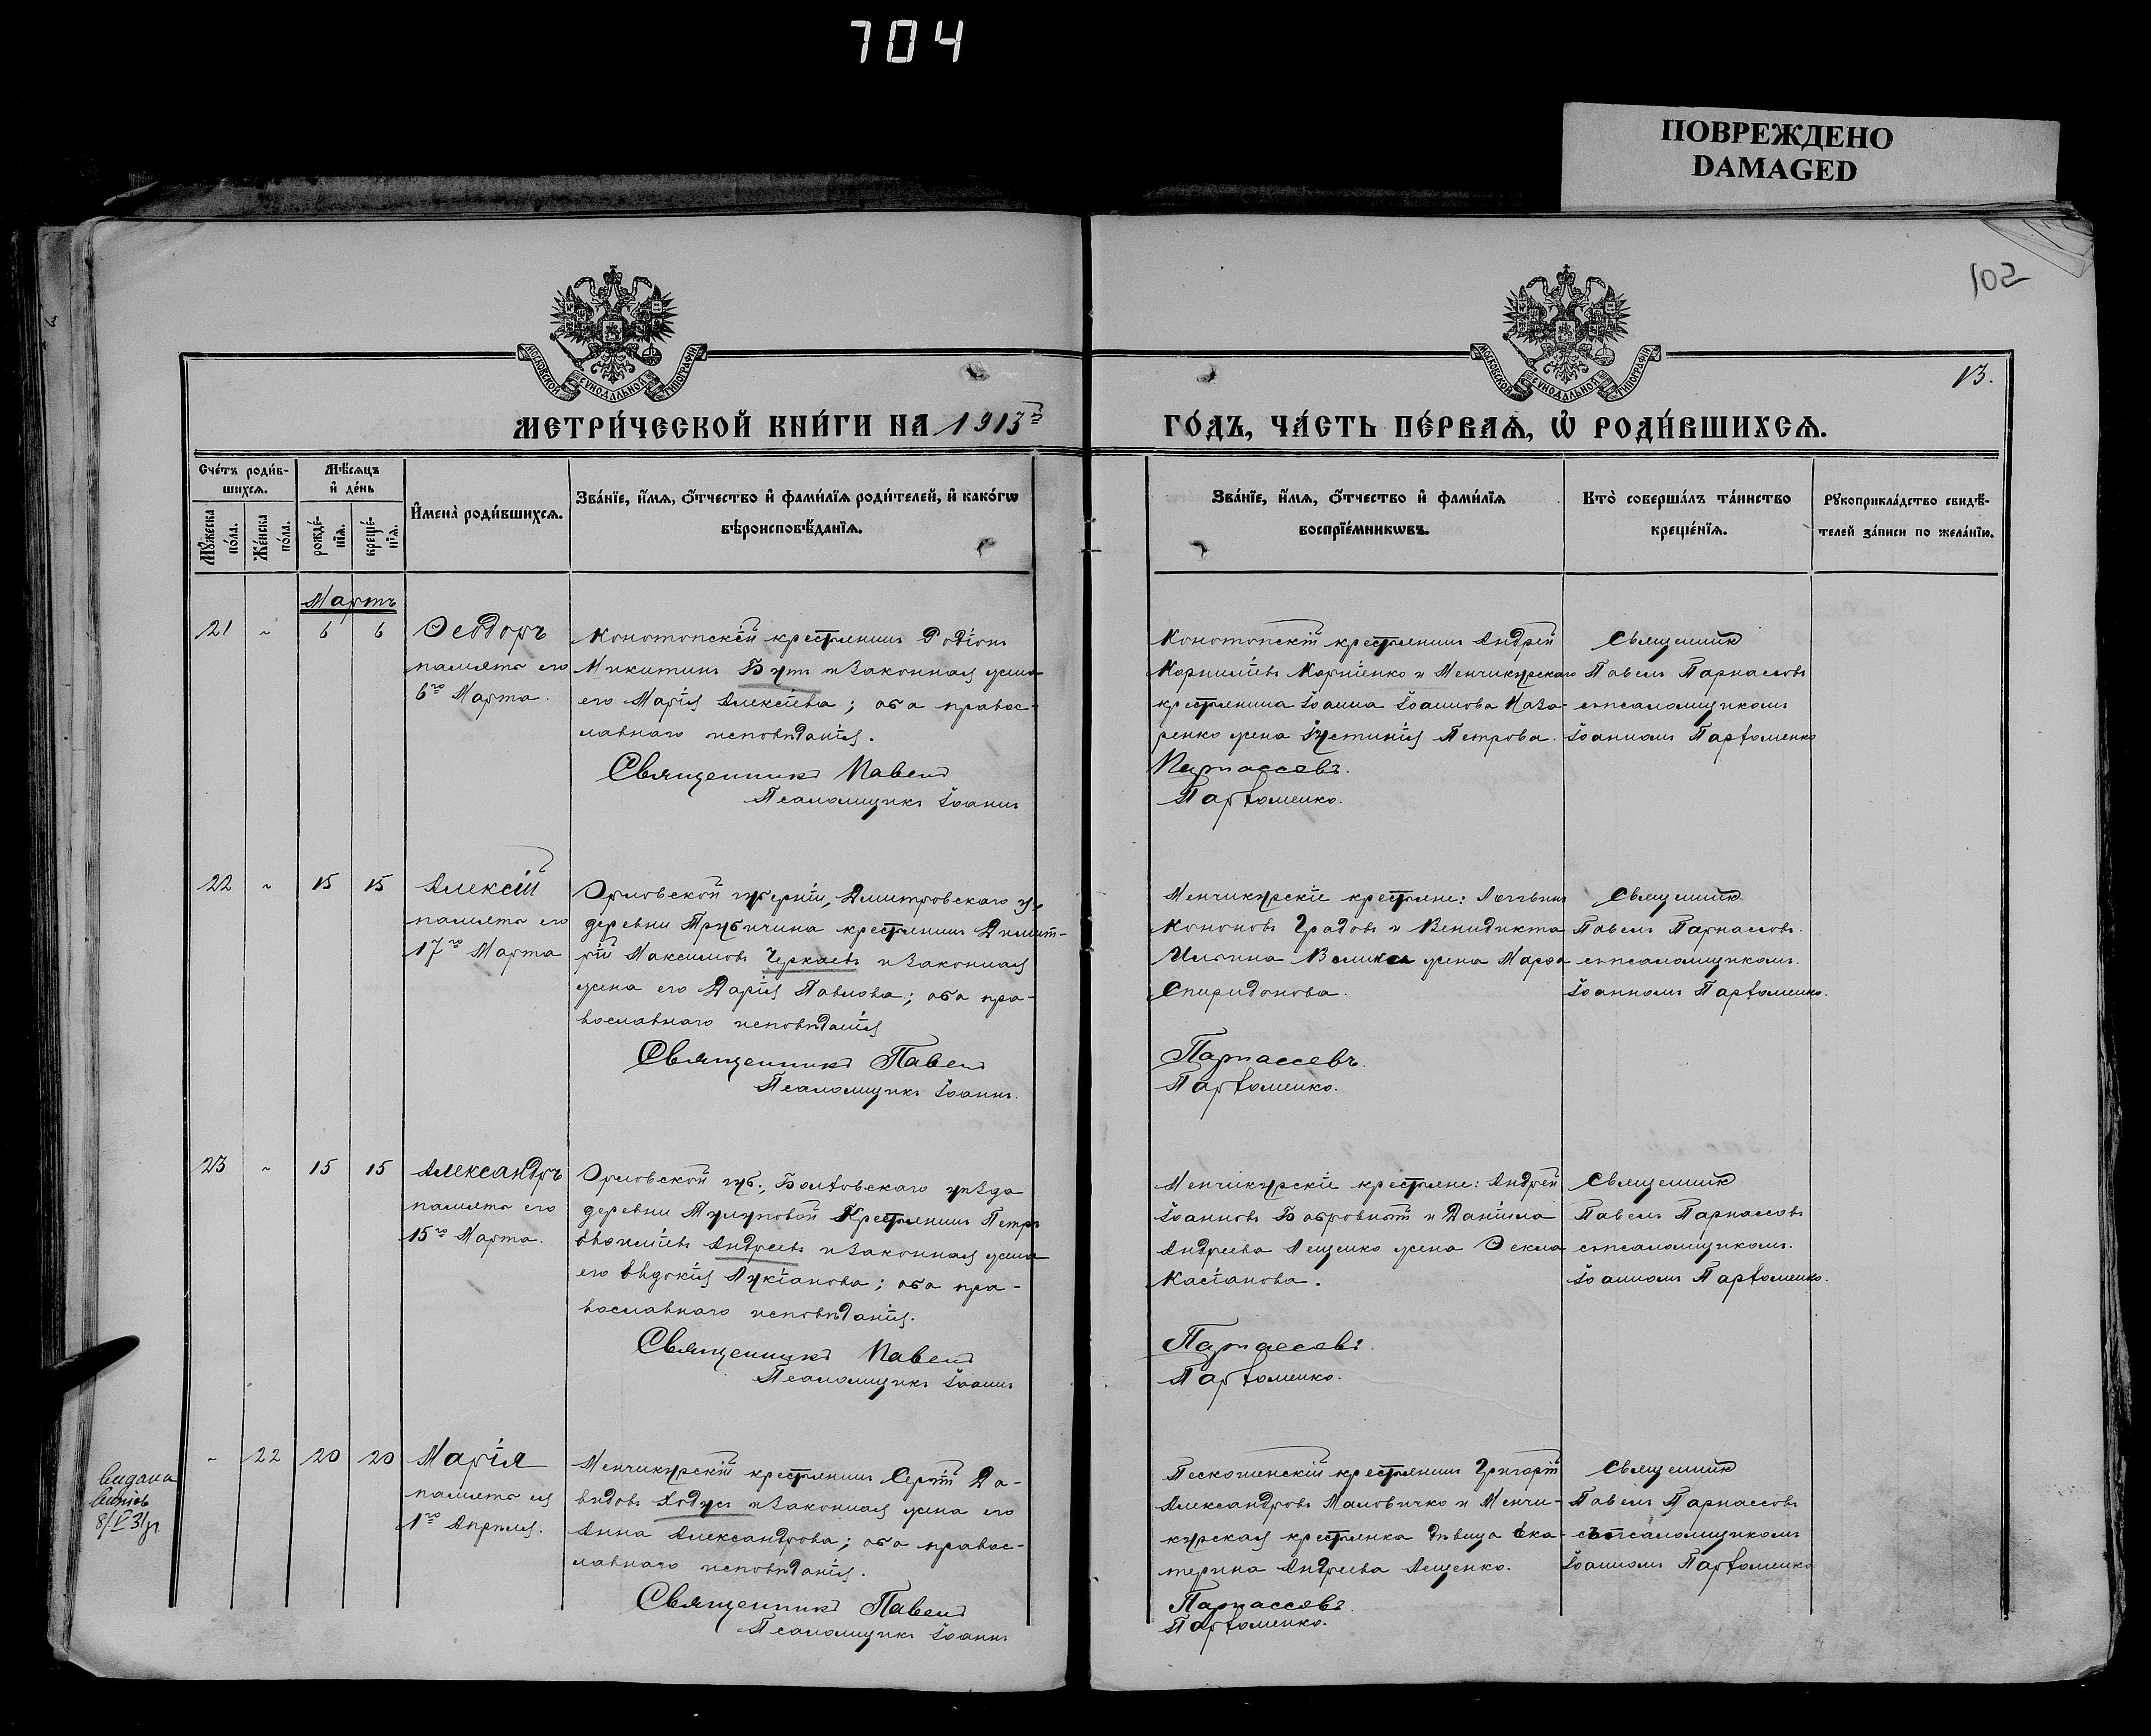 704
ПОВРЕЖДЕНО
DAMAGED
102
МОСКОВСКОЙ СѴНОДАЛЬНОЙ ТИПОГРАФІИ
МОСКОВСКОЙ СѴНОДАЛЬНОЙ ТИПОГРАФІИ
13.
МЕТРИ́ЧЕСКОЙ КНИ́ГИ НА 1913й
ГО́ДЪ, ЧА́СТЬ ПЕ́РВАѦ, Ѡ РОДИ́ВШИХСѦ.
Сче́тъ роди́в-
шихсѧ.
Мꙋ́жеска по́ла.
Же́нска по́ла.
Мѣ́сѧцъ
и҆ де́нь
рожде́-
нїѧ.
креще́-
нїѧ.
И҆мена̀ роди́вшихсѧ.
Зва́нїе, и҆́мѧ, ѻ҆́тчество и҆ фами́лїѧ роди́телей, и҆ како́гѡ
вѣроисповѣ́данїѧ.
Зва́нїе, и҆́мѧ, ѻ҆́тчество и҆ фами́лїѧ
воспрїе́мникѡвъ.
Кто̀ соверша́лъ та́инство
креще́нїѧ.
Рꙋкоприкла́дство свидѣ́-
телей за́писи по жела́нїю.
Мартъ
21 ~ 6 6
Ѳеодоръ
память его
6го Марта.
Конотопскій крестьянинъ Родіонъ
Никитинъ Бутъ и законная жена
его Марія Алексіева; оба правос-
лавнаго исповѣданія.
Священникъ Павелъ
Псаломщикъ Іоаннъ
Конотопскій крестьянинъ Андрей
Корниліевъ Корніенко и Менчикурскаго
крестьянина Іоанна Іоаннова Наза-
ренко жена Іустинія Петрова.
Парнассовъ.
Парфоменко.
Священникъ
Павелъ Парнассовъ
съ псаломщикомъ
Іоанномъ Парфоменко
22 ~ 15 15
Алексій
память его
17го Марта
Орловской губерніи, Дмитровскаго у.,
деревни Трубичина крестьянинъ Димит-
рій Максимовъ Черкаевъ и законная
жена его Дарія Павлова; оба пра-
вославнаго исповѣданія
Священникъ Павелъ
Псаломщикъ Іоаннъ.
Менчикурскіе крестьяне: Логгинъ
Кононовъ Градовъ и Венидикта
Ильина Велика жена Марѳа
Спиридонова.
Парнассовъ.
Парфоменко.
Священникъ
Павелъ Парнассовъ.
съ псаломщикомъ.
Іоанномъ Парфоменко.
23 ~ 15 15
Александръ
память его
15го Марта.
Орловской губ., Болховскаго уѣзда
деревни Тулуповой Крестьянинъ Петръ
Андреевъ и законная жена
его Евдокія Лукіанова; оба пра-
вославнаго исповѣданія.
Священникъ Павелъ
Псаломщикъ Іоаннъ
Менчикурскіе крестьяне: Андрей
Іоанновъ Бобровный и Даніила
Андреева Лещенко жена Ѳекла
Касіанова.
Парнассовъ.
Парфоменко.
Священникъ
Павелъ Парнассовъ
съ псаломщикомъ.
Іоанномъ Парфоменко.
~ 22 20 20
Марія
память ея
1го Апрѣля.
Менчикурскій крестьянинъ Сергій Да-
видовъ Ходусъ и законная жена его
Анна Александрова; оба правос-
лавнаго исповѣданія.
Священникъ Павелъ
Псаломщикъ Іоаннъ
Пескошенскій крестьянинъ Григорій
Александровъ Маловичко и Менчи-
курская крестьянка дѣвица Ека-
терина Андреева Лещенко.
Парнассовъ.
Парфоменко.
Священникъ
Павелъ Парнассовъ
съ псаломщикомъ
Іоанномъ Парфоменко
Видана